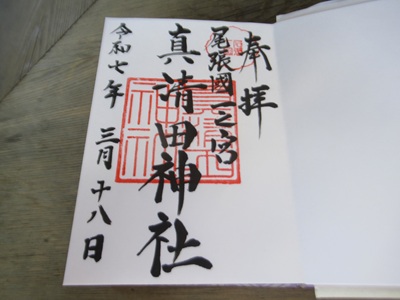 奉拝
尾張國一之宮
真清田神社
令和七年 三月十八日